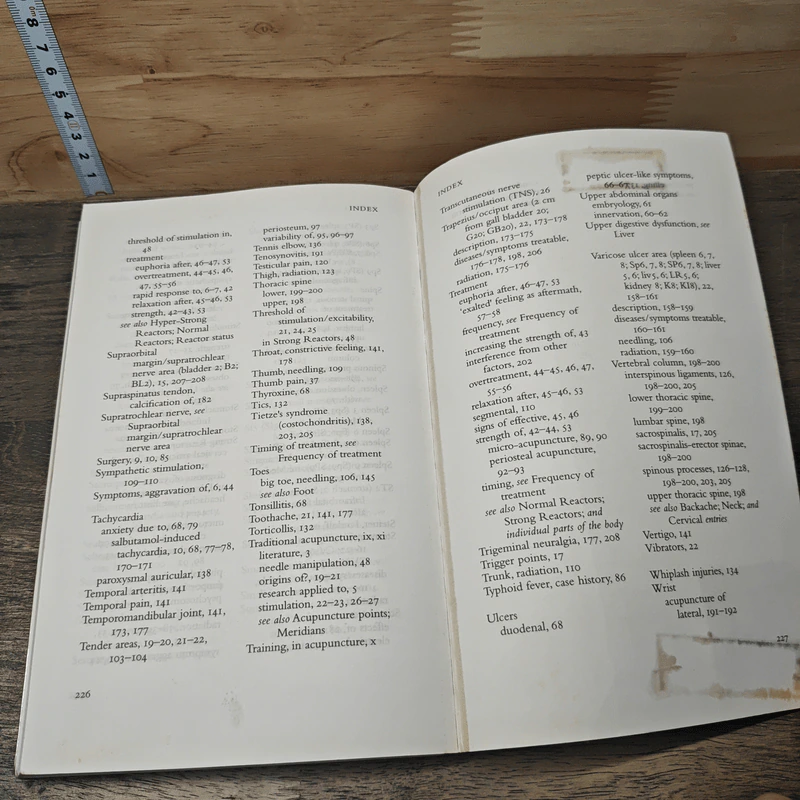 8 7 6 5 4 3 2 1
INDEX
threshold of stimulation in,
48
treatment
euphoria after, 46–47, 53
overtreatment, 44–45, 46,
47, 55–56
rapid response to, 6–7, 42
relaxation after, 45–46, 53
strength, 42–43, 53
see also Hyper-Strong
Reactors; Normal
Reactors; Reactor status
Supraorbital
margin/supratrochlear
nerve area (bladder 2; B2;
BL2), 15, 207–208
Supraspinatus tendon,
calcification of, 182
Supratrochlear nerve, see
Supraorbital
margin/supratrochlear
nerve area
Surgery, 9, 10, 85
Sympathetic stimulation,
109–110
Symptoms, aggravation of, 6, 44
Tachycardia
anxiety due to, 68, 79
salbutamol-induced
tachycardia, 10, 68, 77–78,
170–171
paroxysmal auricular, 138
Temporal arteritis, 141
Temporal pain, 141
Temporomandibular joint, 141,
173, 177
Tender areas, 19–20, 21–22,
103–104
periosteum, 97
variability of, 95, 96–97
Tennis elbow, 136
Tenosynovitis, 191
Testicular pain, 120
Thigh, radiation, 123
Thoracic spine
lower, 199–200
upper, 198
Threshold of
stimulation/excitability,
21, 24, 25
in Strong Reactors, 48
Throat, constrictive feeling, 141,
178
Thumb, needling, 109
Thumb pain, 37
Thyroxine, 68
Tics, 132
Tietze's syndrome
(costochondritis), 138,
203, 205
Timing of treatment, see
Frequency of treatment
Toes
big toe, needling, 106, 145
see also Foot
Tonsillitis, 68
Toothache, 21, 141, 177
Torticollis, 132
Traditional acupuncture, ix, xi
literature, 3
needle manipulation, 48
origins of?, 19–21
research applied to, 5
stimulation, 22–23, 26–27
see also Acupuncture points;
Meridians
Training, in acupuncture, x
226
INDEX
Transcutaneous nerve
stimulation (TNS), 26
Trapezius/occiput area (2 cm
from gall bladder 20;
G20; GB20), 22, 173–178
description, 173–175
diseases/symptoms treatable,
176–178, 198, 206
radiation, 175–176
Treatment
euphoria after, 46–47, 53
'exalted' feeling as aftermath,
57–58
frequency, see Frequency of
treatment
increasing the strength of, 43
interference from other
factors, 202
overtreatment, 44–45, 46, 47,
55–56
relaxation after, 45–46, 53
segmental, 110
signs of effective, 45, 46
strength of, 42–44, 53
micro-acupuncture, 89, 90
periosteal acupuncture,
92–93
timing, see Frequency of
treatment
see also Normal Reactors;
Strong Reactors; and
individual parts of the body
Trigeminal neuralgia, 177, 208
Trigger points, 17
Trunk, radiation, 110
Typhoid fever, case history, 86
Ulcers
duodenal, 68
peptic ulcer-like symptoms,
66–67,
Upper abdominal organs
embryology, 61
innervation, 60–62
Upper digestive dysfunction, see
Liver
Varicose ulcer area (spleen 6, 7,
8; Sp6, 7, 8; SP6, 7, 8; liver
5, 6; liv5, 6; LR 5, 6;
kidney 8; K8; KI8), 22,
158–161
description, 158–159
diseases/symptoms treatable,
160–161
needling, 106
radiation, 159–160
Vertebral column, 198–200
interspinous ligaments, 126,
198–200, 205
lower thoracic spine,
199–200
lumbar spine, 198
sacrospinalis, 17, 205
sacrospinalis–erector spinae,
198–200
spinous processes, 126–128,
198–200, 203, 205
upper thoracic spine, 198
see also Backache; Neck; and
Cervical entries
Vertigo, 141
Vibrators, 22
Whiplash injuries, 134
Wrist
acupuncture of
lateral, 191–192
227